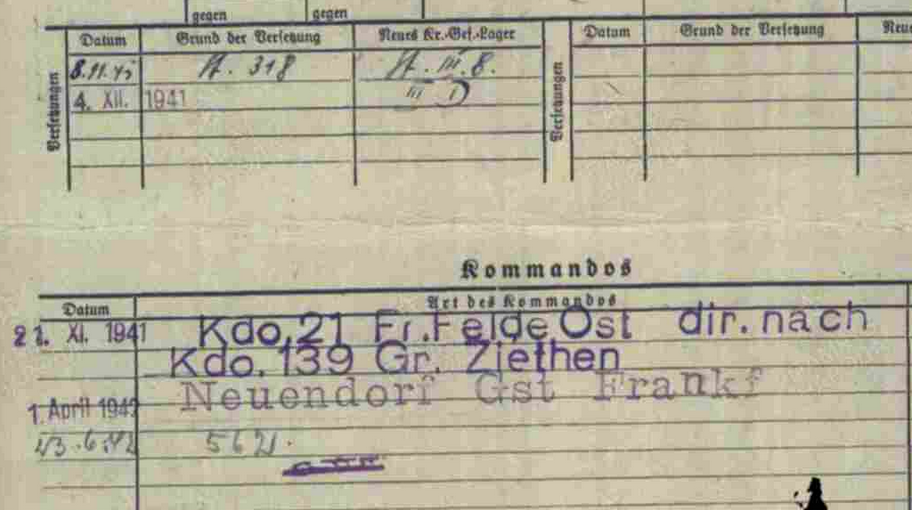 gegen gegen
Versetzungen Datum Grund der Versetzung Neues Kr.-Gef.-Lager Versetzungen Datum Grund der Versetzung Neues
8.11.41 St. 318 St. III. B.
4. XII. 1941 III D
Kommandos
Datum Art des Kommandos
21. XI. 1941 Kdo.21 Fr.Felde Ost dir. nach
Kdo. 139 Gr. Ziethen
Neuendorf Gst Frankf
1. April 1942